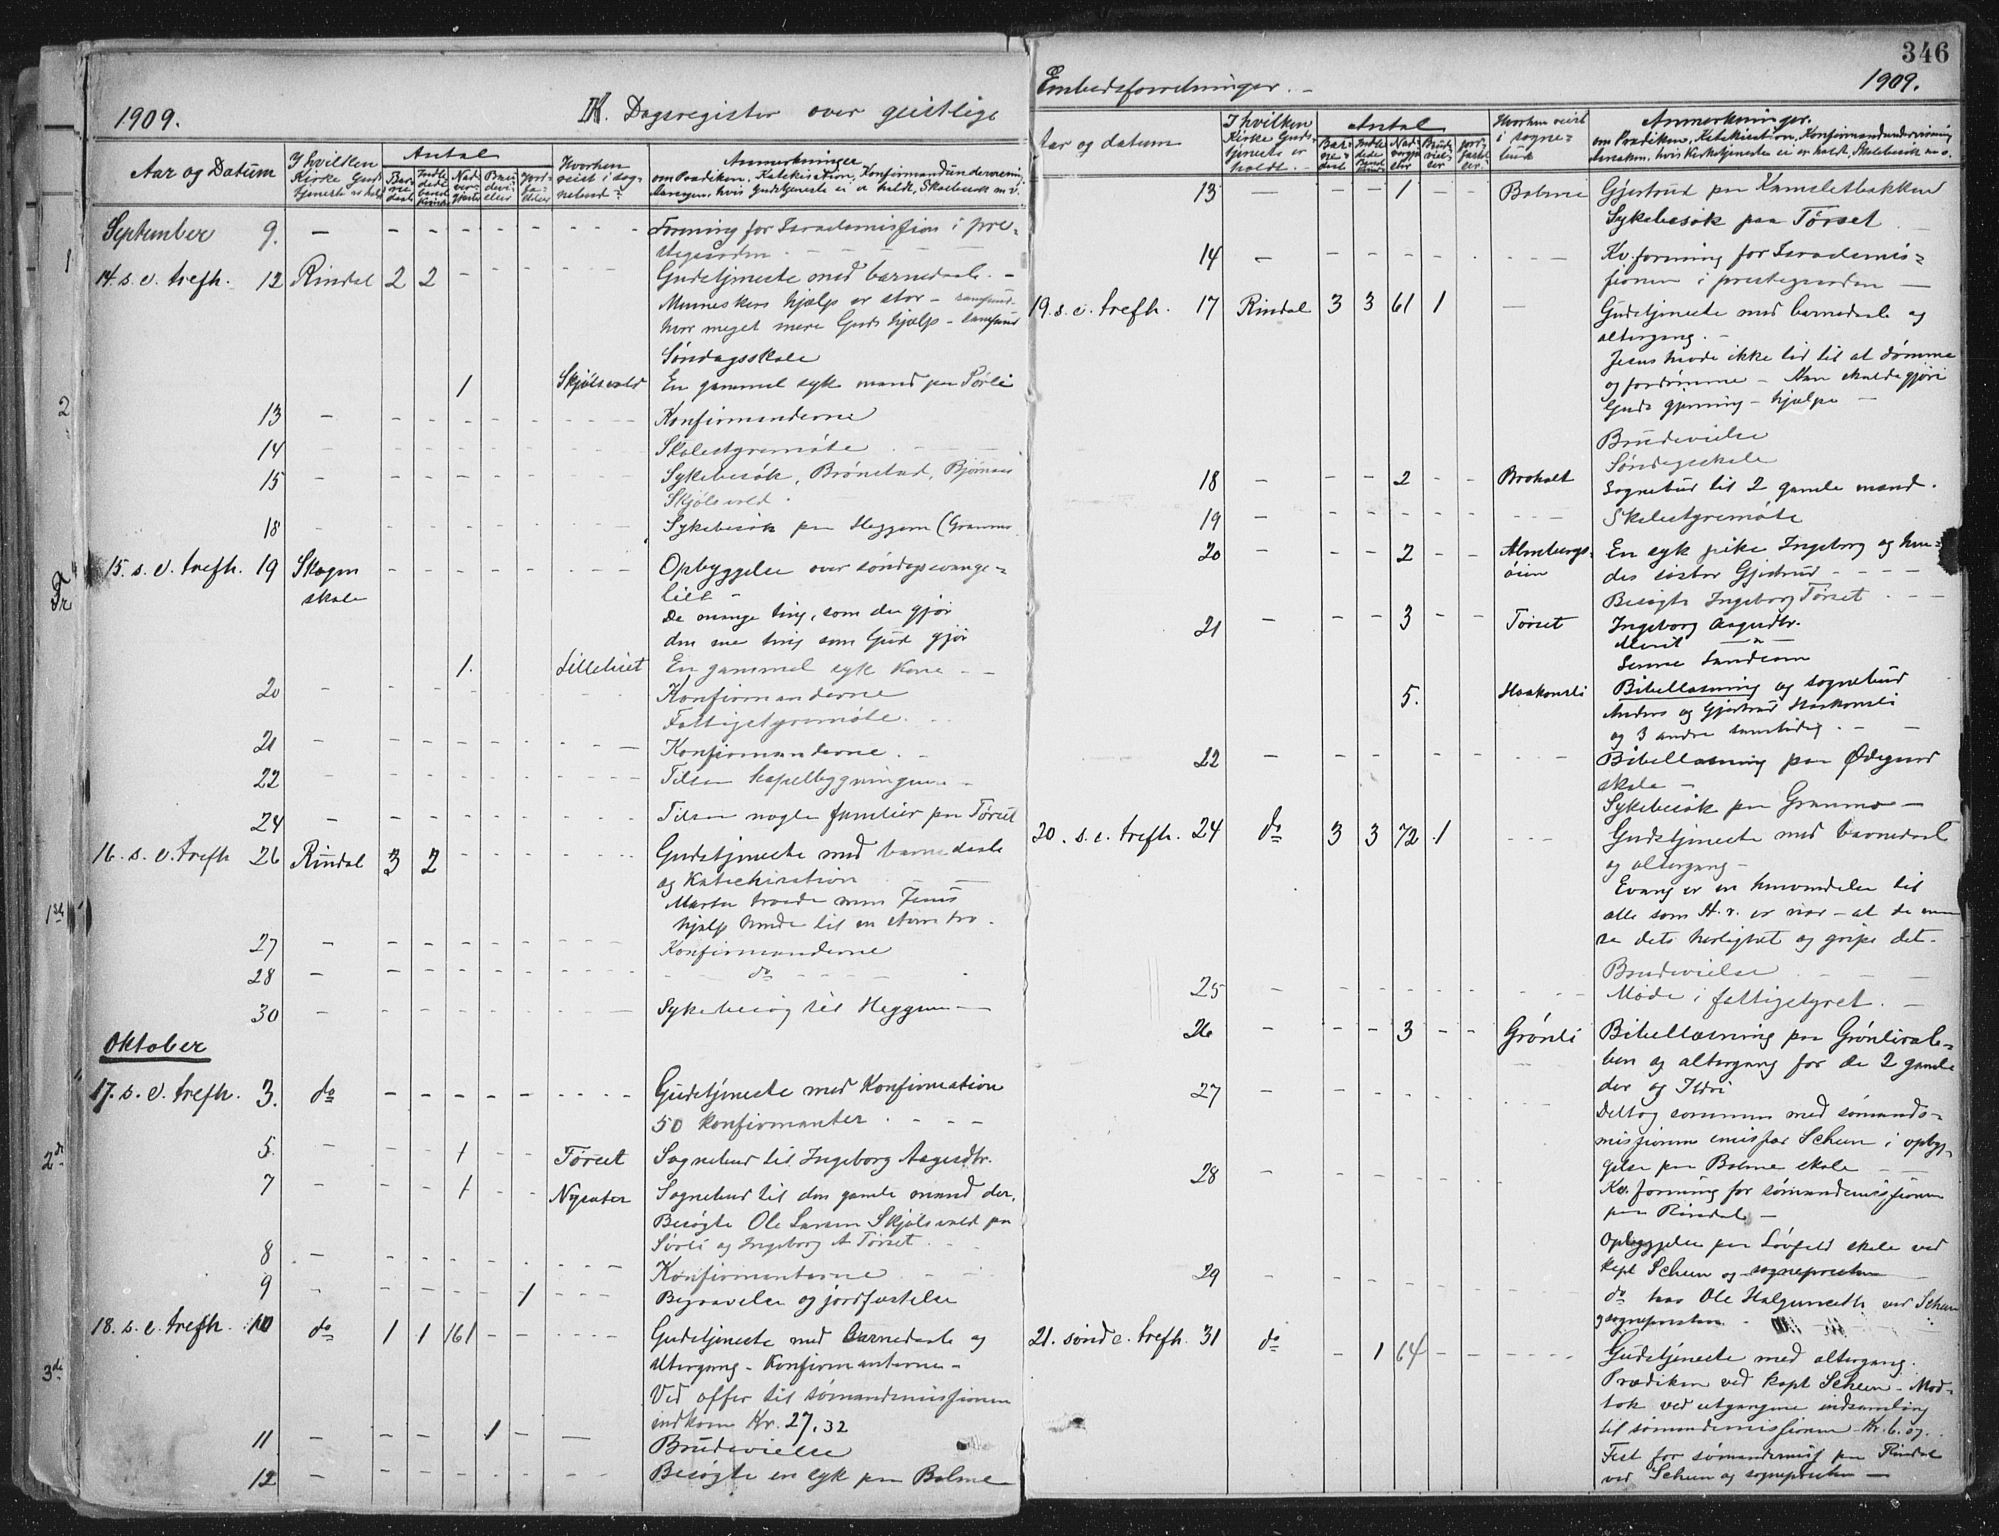 1909.
IX. Dagsregister over geistlige
Aar og Datum
I hvilken
Kirke Guds-
tjeneste er holdt
Antal
Barne-
daab
Indle-
dede
Nad-
ver-
gjester
Bru-
devi-
elser
Jord-
fæ-
stelser
Hvorhen
reist i sog-
nebud
Anmerkninger
om Prædiken, Katekisation, Konfirmandundervisning,
Aarsagen, hvis Gudstjeneste ei er holdt, Skolebesøk m.v.
September 9. Forening for Israelsmission i pre-
stegaarden
14. s. e. trefh. 12 Rindal 2 2 Gudstjeneste med barnedaab.
Menneskers hjælp er stor -
hvor meget mere Guds hjælp -
Søndagsskole
1 Skjølsvold En gammel syk mand paa Sørli
13 Konfirmanderne
14 Skolestyremøte
15 Sykebesøk, Brønstad, Bjørnaas
Skjølsvold.
18 Sykebesøk paa Heggem (Granmo
15. s. e. trefh. 19 Skogen
skole
Opbyggelse over søndagsevange-
liet
De mange ting, som du gjør
den ene ting som Gud gjør
1. Lillebuet En gammel syk kone
20 Konfirmanderne
Fattigstyremøte.
21 Konfirmanderne
22 Tilsaa kapelbygningen
24 Tilsaa nogle familier paa Tørset
16. s. e. trefh 26 Rindal 3 2 Gudstjeneste med barnedaab
og Katekisation
Marta troede men Jesus
hjalp hende til en større tro.
27 Konfirmanderne
28 do
30 Sykebesøg til Heggem
Oktober
17. s. e. trefh. 3. do Gudstjeneste med Konfirmation
50 konfirmanter
5. 1 Tørset Sognebud til Ingeborg Aagesdtr.
7 1 Nysæter Sognebud til den gamle mand der.
Besøgte Ole Larsen Skjølsvold paa
Sørli og Ingeborg A Tørset.
8 Konfirmanterne
9 1 Begravelse og jordfæstelse
18. s. e. trefh. 10 do 1 1 161 Gudstjeneste med Barnedaab og
Altergang - Konfirmanterne -
Ved offer til sømandsmissionen
indkom Kr. 27,32
11 1 Brudevielse
12 Besøgte en syk paa Bolme
346
Embedsforretninger.
1909.
Aar og datum
I hvilken
Kirke Guds-
tjeneste er
holdt.
Antal
Hvorhen reist
i sogne-
bud
Anmerkninger.
om Prædiken, Katekisation, Konfirmandundervisning
Aarsaken, hvis Kirketjeneste ei er holdt. Skolebesøk m.v.
13 1 Bolme Gjertrud paa Kamsletbakken
Sykebesøk paa Tørset
14 Kv.forening for Israelsmis-
sionen i prestegaarden
19. s. e. trefh. 17 Rindal 3 3 61 1 Gudstjeneste med barnedaab og
altergang.
Jesus havde ikke tid til at dømme
og fordømme - Han skulde gjøre
Guds gjerning - hjælpe
Brudevielse
Søndagsskole
18 2 Broholt Sognebud til 2 gamle mænd.
19 Skolestyremøte
20 2 Almbergs-
øien
En syk pike Ingeborg og hen-
des søster Gjertrud
Besøgte Ingeborg Tørset
21 3 Tørset Ingeborg Aagesdtr.
Marit "
5. Haakonsli Bibellæsning og sognebud
Anders og Gjertrud Haakonsli
og 3 andre samtidig.
22 Bibellæsning paa Ødegaard
skole
Sykebesøk paa Granmo
20. s. e. trefh. 24 do 3 3 72 1 Gudstjeneste med barnedaab
og altergang
Evang er en henvendelse til
alle som H. r. er nær - at de maa
se dets herlighet og gripe det.
Brudevielse
25 Møde i fattigstyret.
26 3 Grønli Bibellæsning paa Grønlisale-
ben og altergang for de 2 gamle
der og Ildri
27 Deltog sammen med sømands-
missionens emissær Scheen i opbyg-
gelse paa Bolme skole
28 Kv. forening for sømandsmissionen
paa Rindal
Opbyggelse paa Løvfald skole ved
kapt Scheen og sognepresten
29 do hos Ole Halgunseth ved Scheen
og sognepresten
21. sønd e. trefh. 31 do 1 64 Gudstjeneste med altergang.
Prædiken ved kapt Scheen - Mod-
tok ved utgangene indsamling
til sømandsmissionen Kr. 6.07.
Fest for sømandsmis paa Rindal
ved Scheen og sognepresten